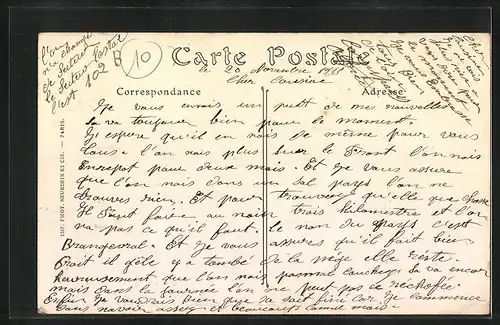 l'on
nous change
de Secteur
le Secteur Postal
c'est 102
B
10
Carte Postale
le 20 Novembre
Cher Cousine
Correspondance
Adresse
IMP. PHOT. NEURDEIN ET CIE. — PARIS.
Je vous envoie un petit de mes nouvelles
Sa va toujours bien pour le moment
J'espere qu'il en sois de même pour vous
tous. l'on nais plus sur le Front l'on nais
Enrepot pour deux mais. Et Je vous assure
que l'on nais dans un sal pays l'on ne
trouves rien. Et pour trouver qu'elle que chose
Il Faut faire au moin trois Kilometre et l'on
na pas ce qu'il faut. le nom du pays c'est
Brangeval. Et Je vous assures qu'il fait bien
Froit il gèle y a tombe de la nege elle reste.
Heureusement que l'on nais pasmal coucher sa va encor
mais dans la journée l'on ne peut pas ce rechofer
Enfin Je vaudrais bien que sa sait fini car Je commence
dans navoir assez et beaucoup comme mais.